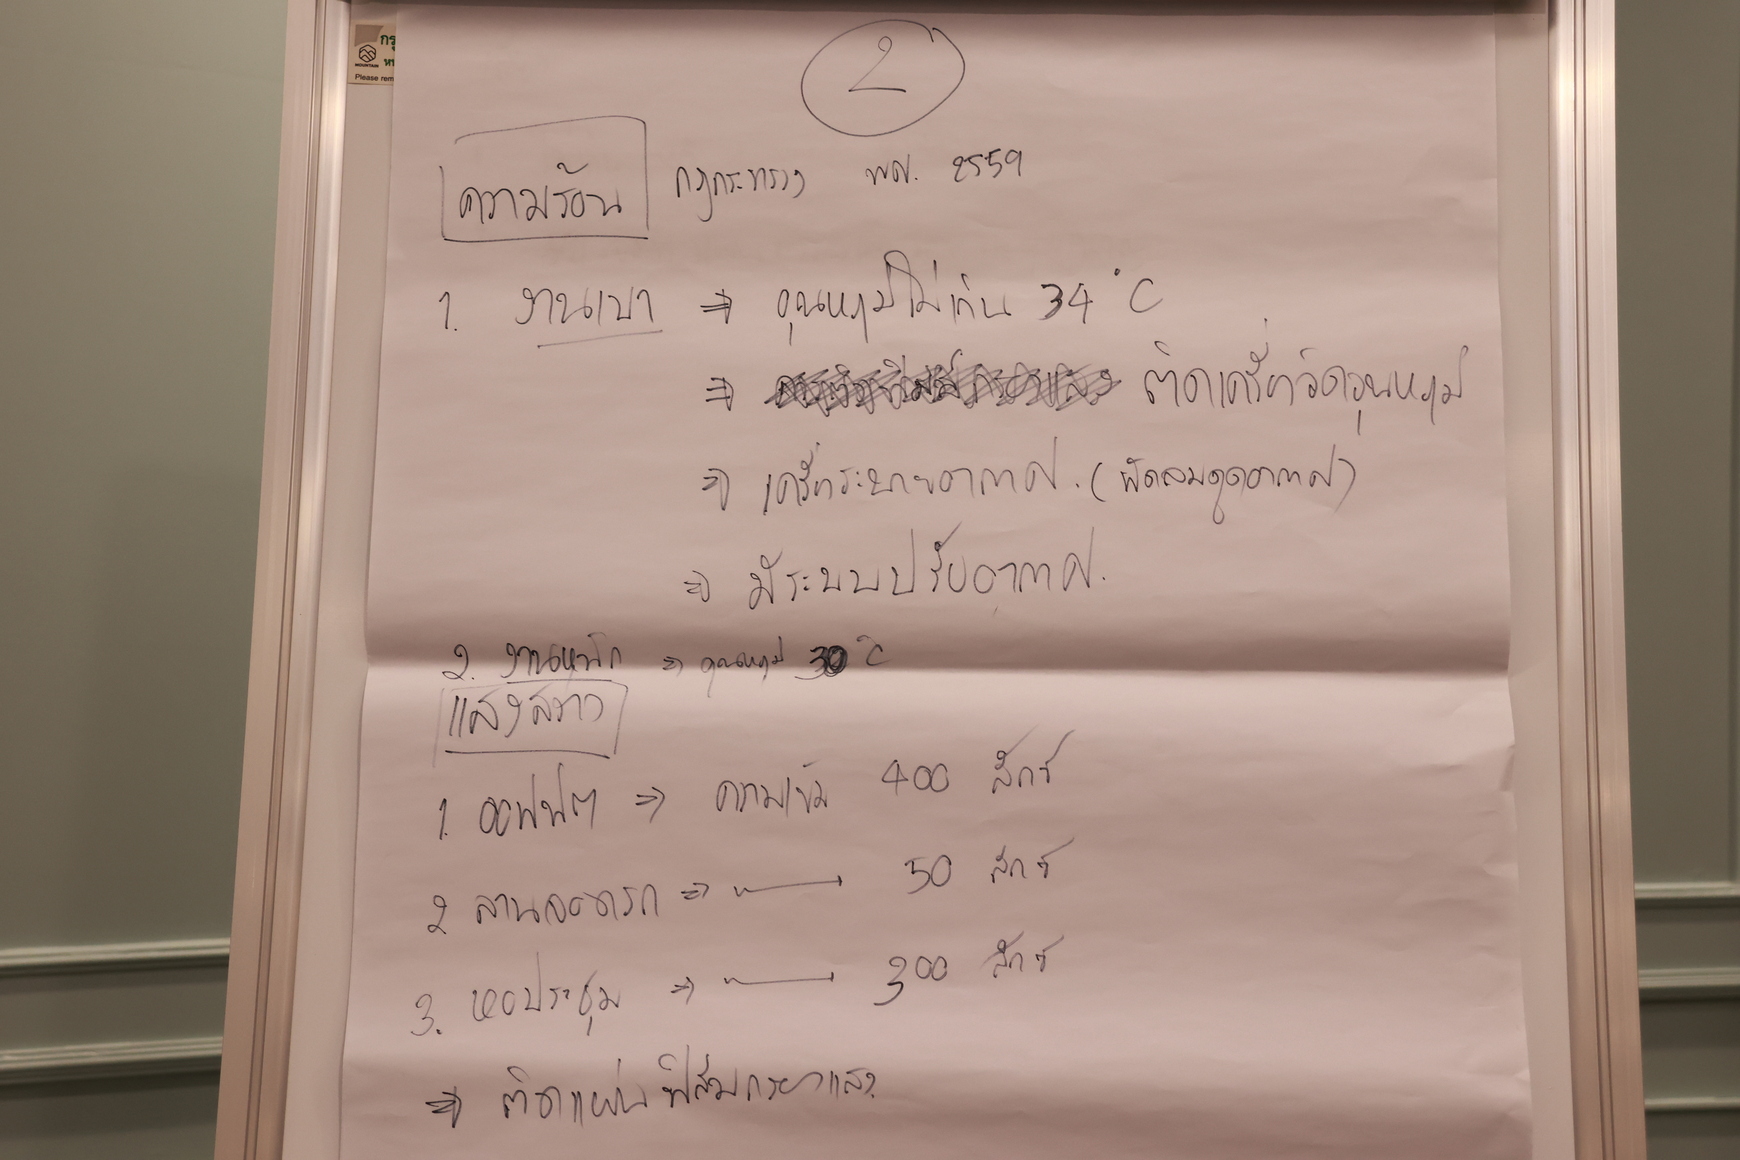 กรุ
MOUNTAIN
Please rem
2
ความร้อน กฎกระทรวง พศ. 2559
1. งานเบา ⇒ อุณหภูมิไม่เกิน 34 °C
⇒ ติดเครื่องวัดอุณหภูมิ
⇒ เครื่องระบายอากาศ. (พัดลมดูดอากาศ)
⇒ มีระบบปรับอากาศ.
2. งานหนัก ⇒ อุณหภูมิ 30 °C
แสงสว่าง
1. ออฟฟิต ⇒ ความเข้ม 400 ลักซ์
2 ลานจอดรถ ⇒ 50 ลักซ์
3. ห้องประชุม ⇒ 300 ลักซ์
⇒ ติดแผ่นฟิล์มกรองแสง